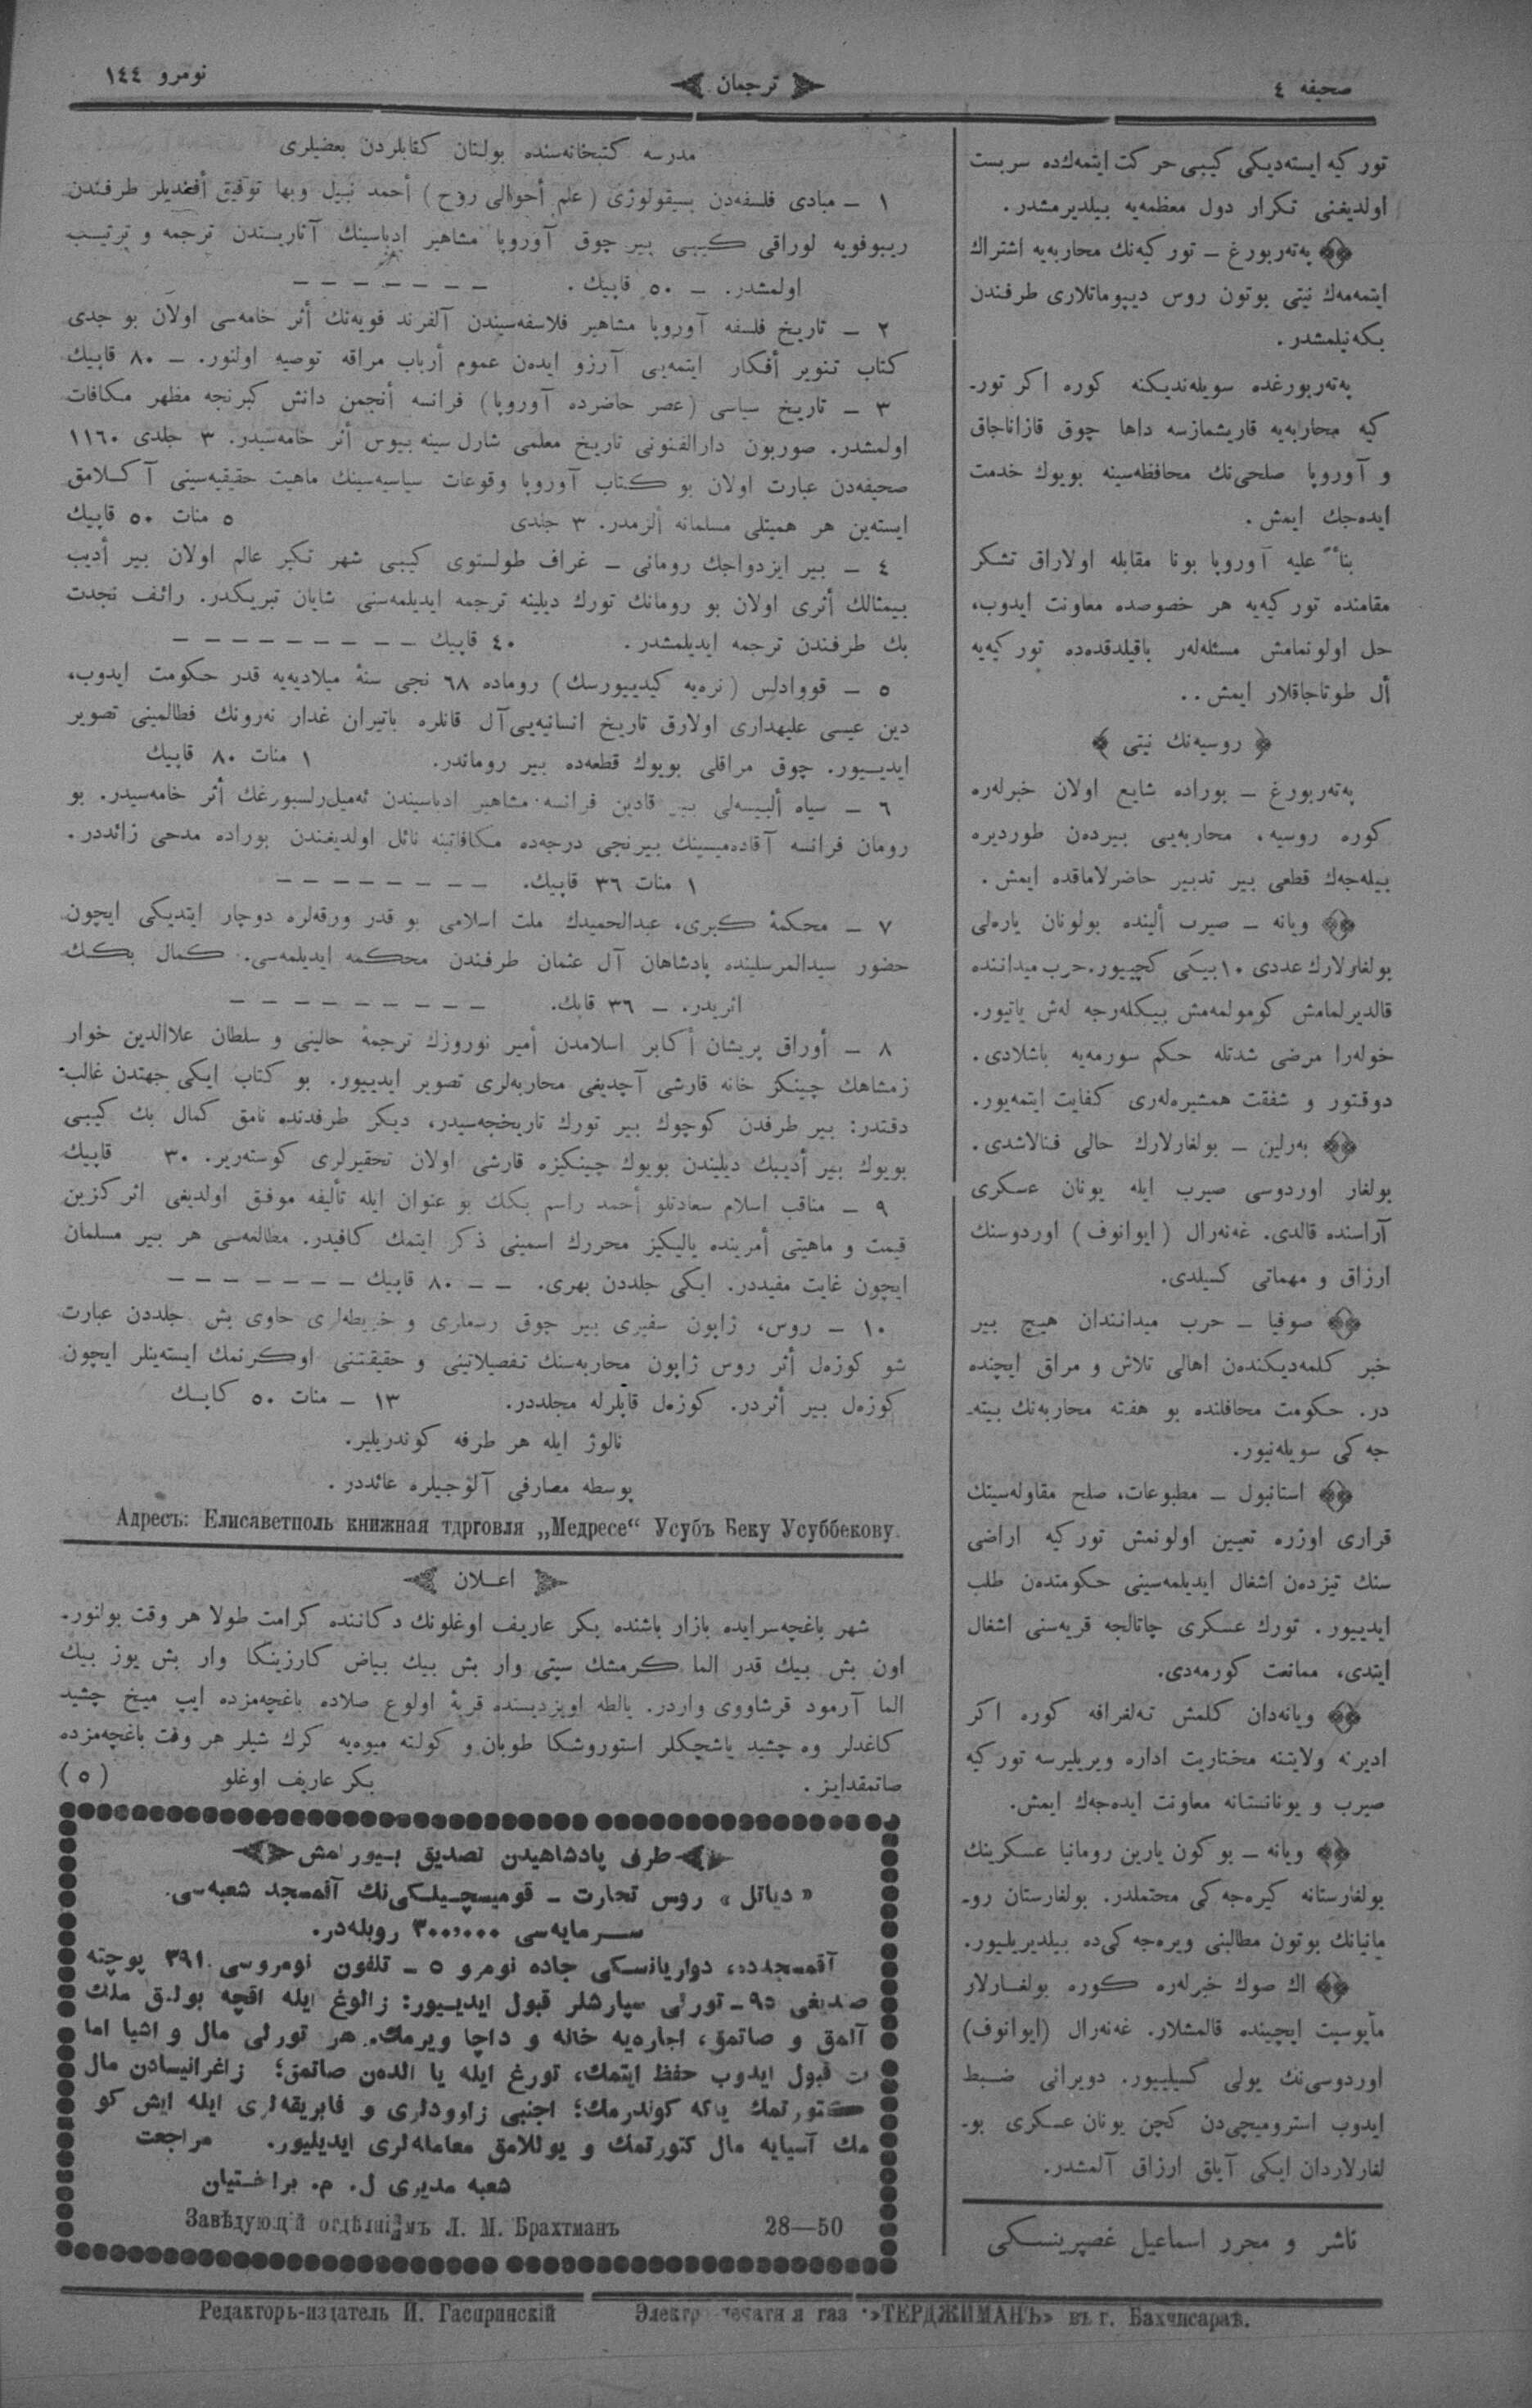 صحیفه ٤
ترجمان
نومرو ١٤٤
تورکیه ایستەدیکی کیبی حرکت ایتمەکده سربست
اولدیغنی تکرار دول معظمەیه بیلدیرمشدر.
پەتەربورغ – تورکیەنك محاربەیه اشتراك
ایتمەمەك نیتی بوتون روس دیپوماتلاری طرفندن
بکەنیلمشدر.
پەتەربورغده سویلەندیکنه کوره اکر تور-
کیه محاربەیه قاریشمازسه داها چوق قازاناجاق
و آوروپا صلحی‌نك محافظەسینه بویوك خدمت
ایدەجك ایمش.
بناءً علیه آوروپا بونا مقابله اولاراق تشکر
مقامنده تورکیەیه هر خصوصده معاونت ایدوب،
حل اولونمامش مسئلەلەر باقیلدقدەده تورکیەیه
أل طوتاجاقلار ایمش..
روسیەنك نیتی
پەتەربورغ – بوراده شایع اولان خبرلەره
کوره روسیه، محاربەیی بیردەن طوردیره
بیلەجەك قطعی بیر تدبیر حاضرلاماقده ایمش.
ویانه – صیرب ألینده بولونان یارەلی
بولغارلارك عددی ١٠ بیکی کچییور. حرب میداننده
قالدیرلمامش کومولمەمش بیکلەرجه لەش یاتیور.
خولەرا مرضی شدتله حکم سورمەیه باشلادی.
دوقتور و شفقت همشیرەلەری کفایت ایتمەیور.
بەرلین – بولغارلارك حالی فنالاشدی.
بولغار اوردوسی صیرب ایله یونان عسکری
آراسنده قالدی. غەنەرال (ایوانوف) اوردوسنك
ارزاق و مهماتی کسیلدی.
صوفیا – حرب میدانندان هیچ بیر
خبر کلمەدیکندەن اهالی تلاش و مراق ایچنده
در. حکومت محافلنده بو هفته محاربەنك بیتە-
جەکی سویلەنیور.
استانبول – مطبوعات، صلح مقاولەسینك
قراری اوزره تعیین اولونمش تورکیه اراضی
سنك تیزدەن اشغال ایدیلمەسینی حکومتدەن طلب
ایدییور. تورك عسکری چاتالجه قریەسنی اشغال
ایتدی، ممانعت کورمەدی.
ویانەدان کلمش تەلغرافه کوره اکر
ادیرنه ولایتنه مختاریت اداره ویریلیرسه تورکیه
صیرب و یونانستانه معاونت ایدەجەك ایمش.
ویانه – بوکون یارین رومانیا عسکرینك
بولغارستانه کیرەجەکی محتملدر. بولغارستان رو-
مانیانك بوتون مطالبنی ویرەجەکی‌ده بیلدیریلیور.
اك صوك خبرلەره کوره بولغارلار
مأیوسیت ایچینده قالمشلار. غەنەرال (ایوانوف)
اوردوسی‌نك یولی کسیلییور. دویرانی ضبط
ایدوب استرومیچی‌دن کچن یونان عسکری بو-
لغارلاردان ایکی آیلق ارزاق آلمشدر.
ناشر و محرر اسماعیل غصپرینسکی
مدرسه کتبخانەسنده بولنان کتابلردن بعضیلری
١ – مبادی فلسفەدن پسیقولوژی (علم أحوالی روح) أحمد نبیل وبها توفیق أفندیلر طرفندن
ریبوفویه لوراقی کیبی بیر چوق آوروپا مشاهیر ادباسینك آثاریندن ترجمه و ترتیب
اولمشدر. – ٥٠ قاپیك.
٢ – تاریخ فلسفه آوروپا مشاهیر فلاسفەسیندن آلفرند فویەنك أثر خامەسی اولان بو جدی
کتاب تنویر أفکار ایتمەیی آرزو ایدەن عموم أرباب مراقه توصیه اولنور. – ٨٠ قاپیك
٣ – تاریخ سیاسی (عصر حاضرده آوروپا) فرانسه أنجمن دانش کبرنجه مظهر مکافات
اولمشدر. صوربون دارالفنونی تاریخ معلمی شارل سینه بیوس أثر خامەسیدر. ٣ جلدی ١١٦٠
صحیفەدن عبارت اولان بو کتاب آوروپا وقوعات سیاسیەسینك ماهیت حقیقیەسینی آکلامق
ایستەین هر همیتلی مسلمانه ألزمدر. ٣ جلدی ٥ منات ٥٠ قاپیك
٤ – بیر ایزدواجك رومانی – غراف طولستوی کیبی شهر تکبر عالم اولان بیر أدیب
بیمثالك أثری اولان بو رومانك تورك دیلینه ترجمه ایدیلمەسنی شایان تبریکدر. رائف نجدت
بك طرفندن ترجمه ایدیلمشدر. ٤٠ قاپیك
٥ – قووادلس (نرەیه کیدییورسك) روماده ٦٨ نجی سنۀ میلادیەیه قدر حکومت ایدوب،
دین عیسی علیهداری اولارق تاریخ انسانیەیی آل قانلره باتیران غدار نەرونك فظالمینی تصویر
ایدییور. چوق مراقلی بویوك قطعەده بیر روماندر. ١ منات ٨٠ قاپیك
٦ – سیاه ألبیسەلی بیر قادین فرانسه مشاهیر ادباسیندن ئەمیل‌رلسبورغك أثر خامەسیدر. بو
رومان فرانسه آقادەمیسینك بیرنجی درجەده مکافاتینه نائل اولدیغندن بوراده مدحی زائددر.
١ منات ٣٦ قاپیك.
٧ – محکمۀ کبری، عبدالحمیدك ملت اسلامی بو قدر ورقەلره دوچار ایتدیکی ایچون
حضور سیدالمرسلینده پادشاهان آل عثمان طرفندن محکمه ایدیلمەسی. کمال بکك
اثریدر. – ٣٦ قابك.
٨ – أوراق پریشان أکابر اسلامدن أمیر نوروزك ترجمۀ حالینی و سلطان علاالدین خوار
زمشاهك چینکز خانه قارشی آچدیغی محاربەلری تصویر ایدییور. بو کتاب ایکی جهتدن غالب
دقتدر: بیر طرفدن کوچوك بیر تورك تاریخجەسیدر، دیکر طرفدنده نامق کمال بك کیبی
بویوك بیر أدیبك دیلیندن بویوك چینکیزه قارشی اولان تحقیرلری کوستەریر. ٣٠ قاپیك
٩ – مناقب اسلام سعادتلو أحمد راسم بکك بو عنوان ایله تألیفه موفق اولدیغی اثرکزین
قیمت و ماهیتی أمرینده یالیکیز محررك اسمینی ذکر ایتمك کافیدر. مطالعەسی هر بیر مسلمان
ایچون غایت مفیددر. ایکی جلددن بهری. – – ٨٠ قاپیك
١٠ – روس، ژاپون سفیری بیر چوق رسماری و خریطەلری حاوی بش جلددن عبارت
شو کوزەل أثر روس ژاپون محاربەسنك تفصیلاتینی و حقیقتنی اوکرنمك ایستەینلر ایچون
کوزەل بیر أثردر. کوزەل قابلرله مجلددر. ١٣ – منات ٥٠ کاپیك
نالوژ ایله هر طرفه کوندریلیر.
پوسطه مصارفی آلوجیلره عائددر.
Адресъ: Елисаветполь книжная тдрговля „Медресе“ Усубъ Беку Усуббекову.
اعلان
شهر باغچەسرایده بازار باشنده بکر عاریف اوغلونك دکاننده کرامت طولا هر وقت بولنور-
اون بش بیك قدر الما کرمشك سیتی وار بش بیك بیاض کارزینکا وار بش یوز بیك
الما آرمود قرشاووی واردر. یالطه اویزدیسنده قریۀ اولوع صلاده باغچەمزده ایپ میخ چشید
کاغدلر وه چشید یاشچکلر استوروشکا طوبان و کولته میوەیه کرك شیلر هر وقت باغچەمزده
صاتمقدایز. بکر عاریف اوغلو (٥)
طرف پادشاهیدن تصدیق بیورلمش
« دیاتل » روس تجارت – قومیسچیلکی‌نك آقمسجد شعبەسی.
سرمایەسی ٣٠٠،٠٠٠ روبلەدر.
آقمسجدده، دواریانسکی جاده نومرو ٥ – تلفون نومروسی ٣٩١. پوچته
صندیغی ٩٥ – تورلی سپارشلر قبول ایدییور: زالوغ ایله اقچه بولق ملك
آلمق و صاتمق، اجارەیه خانه و داچا ویرمك. هر تورلی مال و اشیا اما
ت قبول ایدوب حفظ ایتمك، تورغ ایله یا الدەن صاتمق؛ زاغرانیسادن مال
کتورتمك یاکه کوندرمك؛ اجنبی زاوودلری و فابریقەلری ایله ایش کو
مك آسیایه مال کتورتمك و یوللامق معاملەلری ایدیلیور. مراجعت
شعبه مدیری ل. م. براختیان
Завѣдующій отдѣленіемъ Л. М. Брахтманъ 28—50
Редакторъ-издатель И. Гаспринскій Электро-печатня газ. «ТЕРДЖИМАНЪ» въ г. Бахчисараѣ.